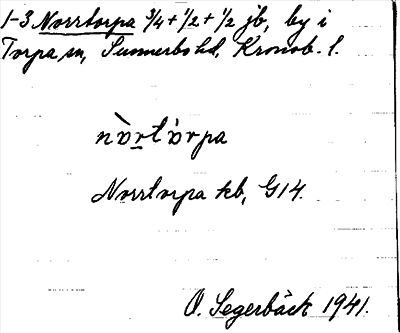 1-3 Norrtorpa 3/4 + 1/2 + 1/2 jb, by i
Torpa sn, Sunnerbo hd, Kronob. l.
nòrtòrpa
Norrtorpa kb, G14.
O. Segerbäck 1941.